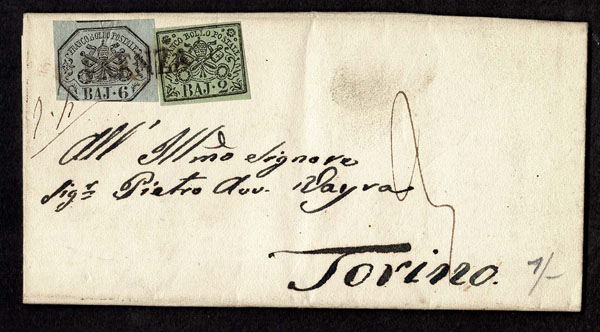 FRANCO BOLLO POSTALE
BAJ·6
FRANCO BOLLO POSTALE
BAJ·2
All' Illmo Signore
Sigr. Pietro Avv. Vayra
Torino.
1/-